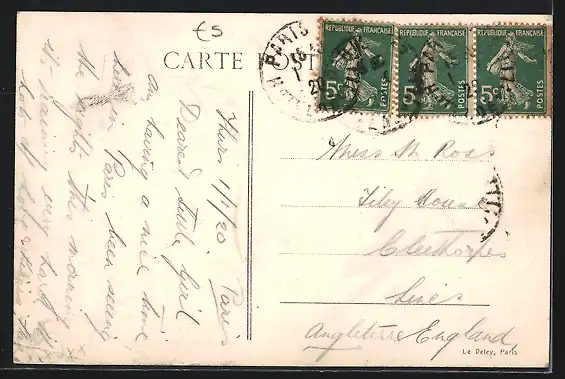 £5
CARTE POSTALE
REPUBLIQUE FRANÇAISE
REPUBLIQUE FRANÇAISE
REPUBLIQUE FRANÇAISE
5c
5c
5c
POSTES
POSTES
POSTES
PARIS
Thurs 1/1/20. Paris
Dearest little Girl
am having a nice time
here in Paris been seeing
the sights this morning
raining very hard
lots of love &
Miss M Ross
Tilby House
Cleethorpes
Lincs
Angleterre England
Le Deley, Paris